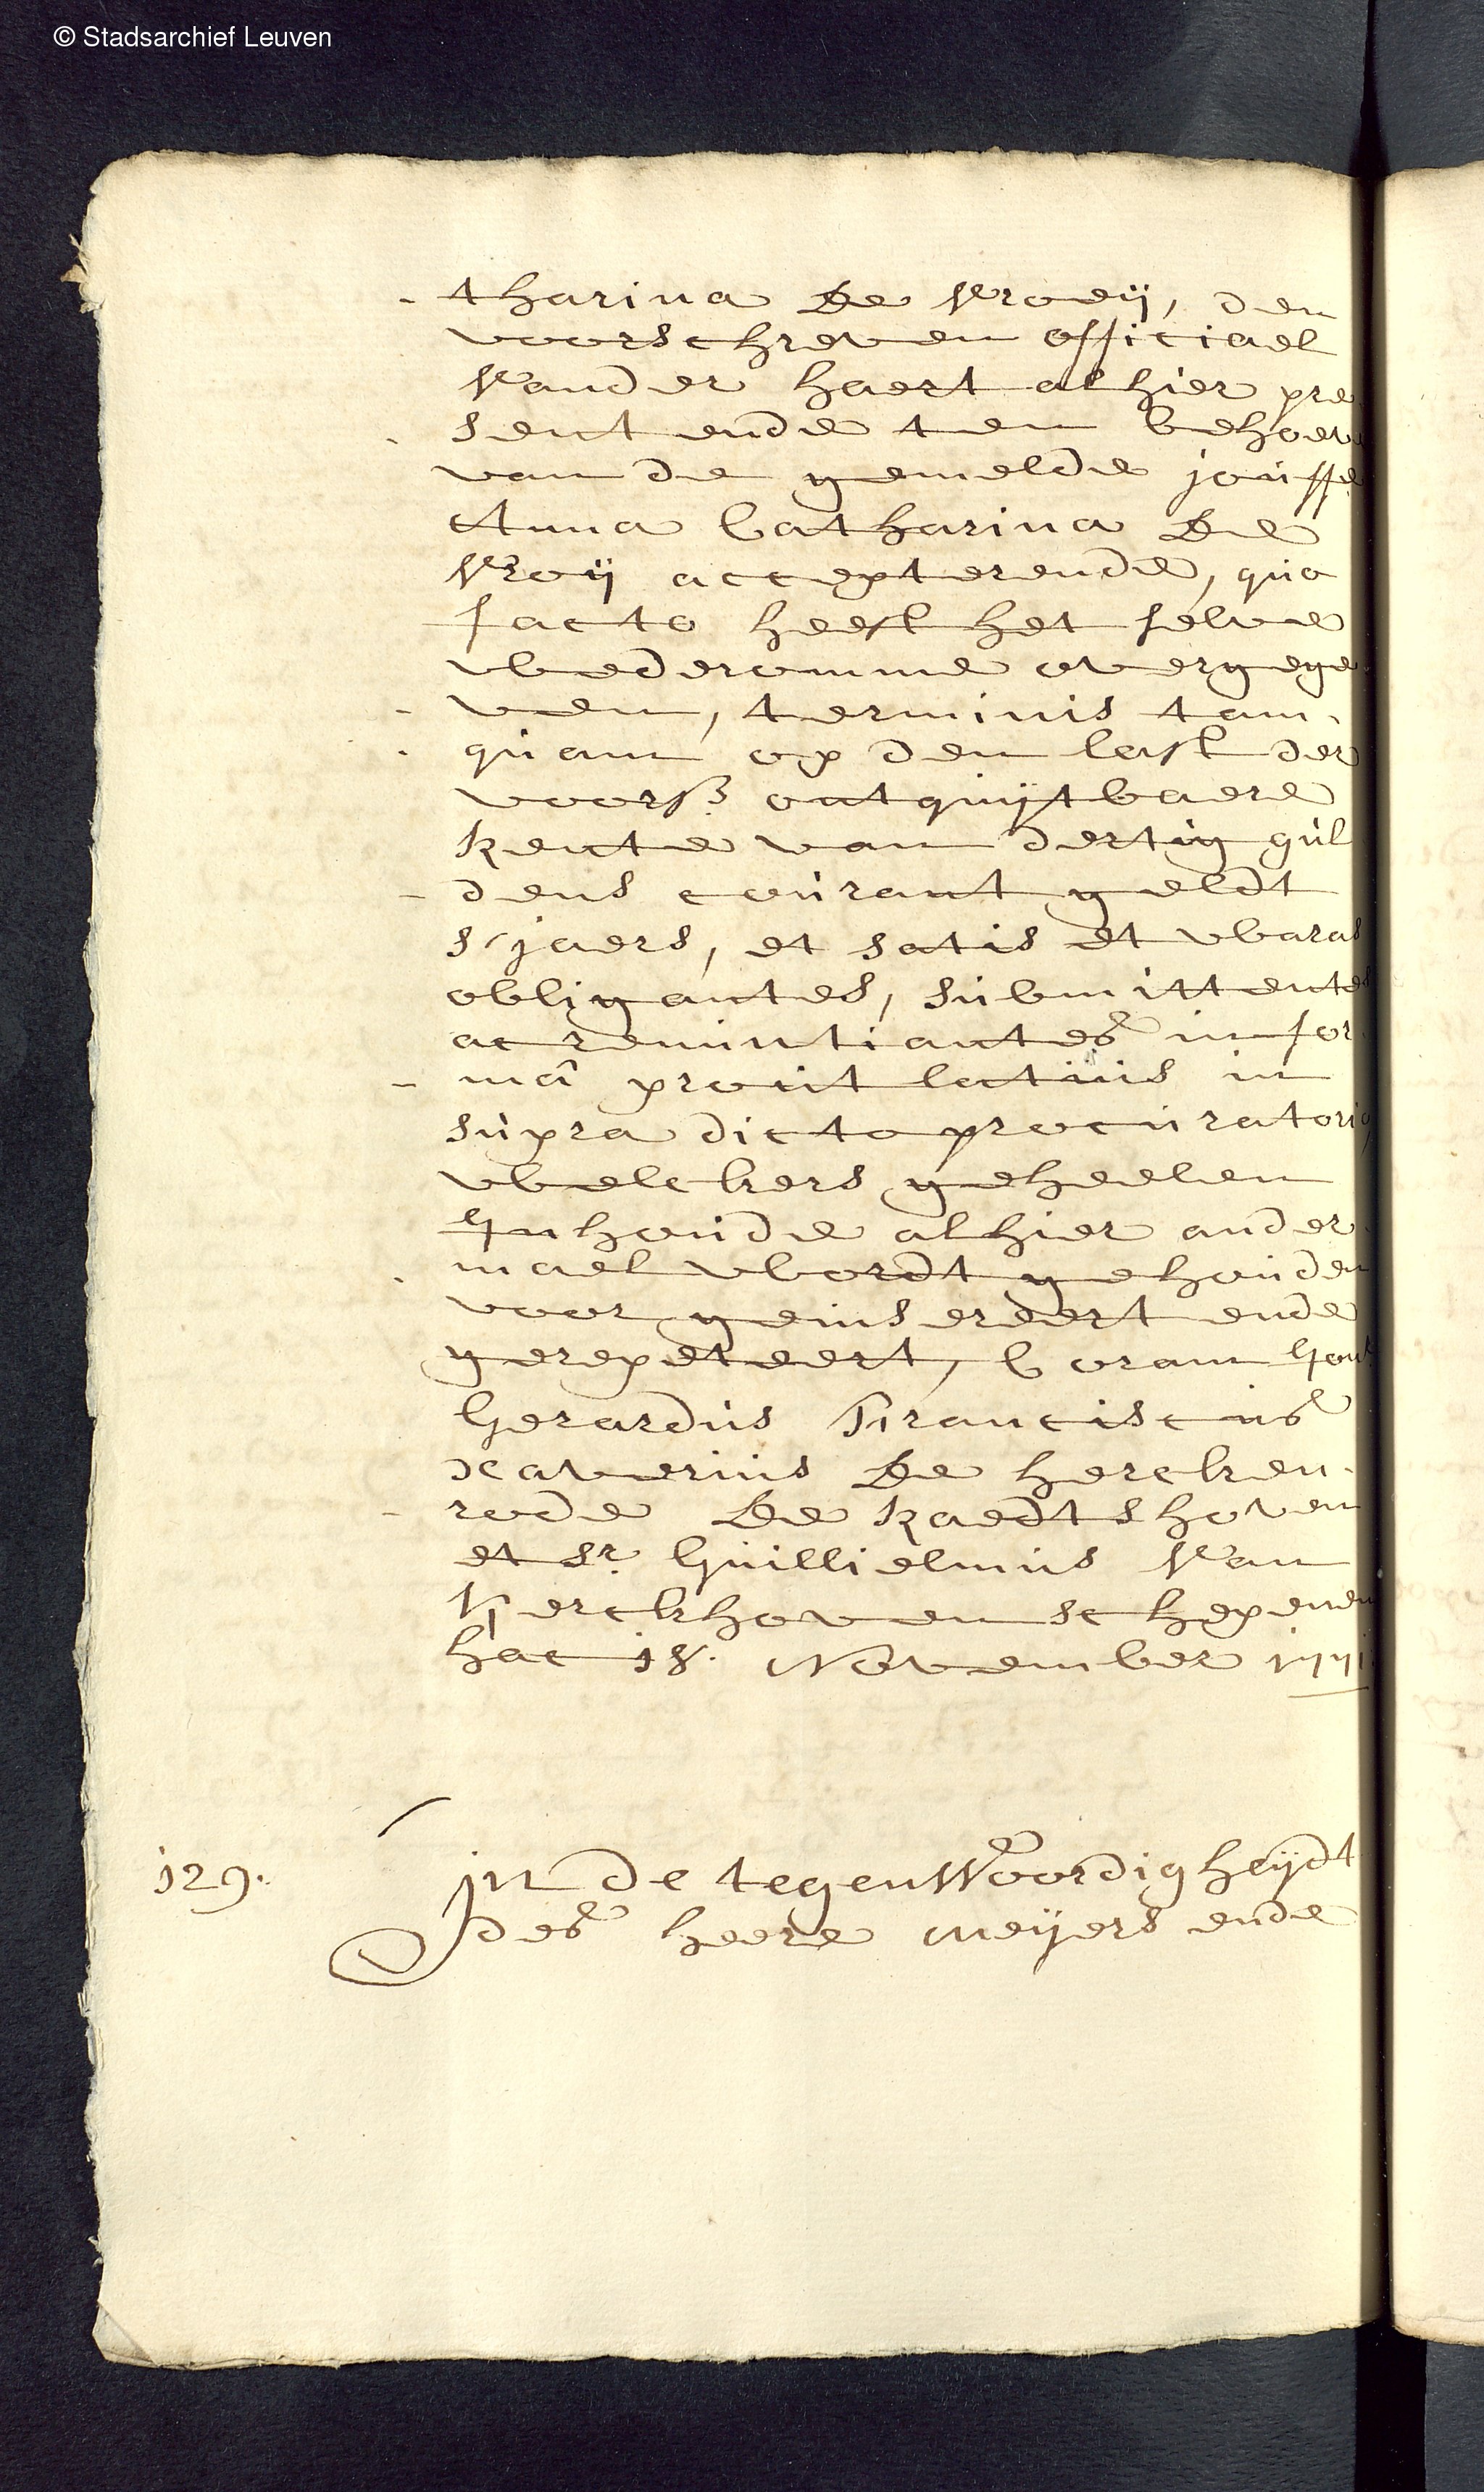 © Stadsarchief Leuven
- tharina De Vroeij, den
voorschreven officiael
Vander haert alhier pre
- sent ende ten behoeve
van de gemelde jouffe
Anna Catharina De
Vroij accepterende, quo
facto heeft het selve
wederomme overgege
- ven, terminis tam-
- quam op den last der
voors. ontquijtbaere
Rente van dertig gul
- dens courant geldt
s'jaers, et satis et waras
obligantes, submittentes
ac renuntiantes in for
- mâ prout latius in
supra dicto procuratorio
welckers geheelen
Inhoude alhier ander
- mael wordt gehouden
voor geinsereert ende
gerepeteert, Coram
Gerardus Franciscus
xaverius De hercken-
- rode De Raedtshoven
et Sr. Guillielmus Van
Kerckhoven schepenen
hac 18. November 1771
129. In de tegenWoordigheijdt
des heere Meijers ende